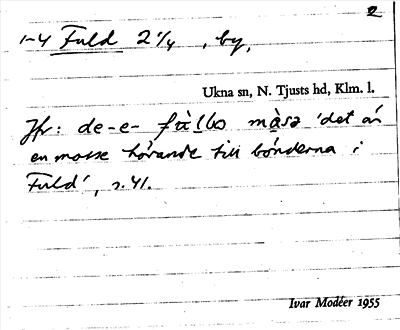 2
1-4 Fuld 2 1/4, by,
Ukna sn, N. Tjusts hd, Klm. l.
Jfr: de-e- måsə 'det är
en mosse hörande till bönderna i
Fuld', s. 41.
Ivar Modéer 1955